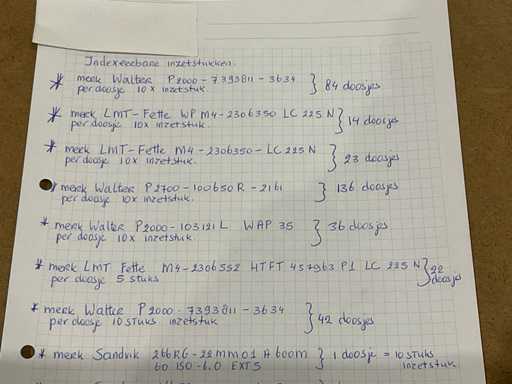 Indexeerbare inzetstukken.
* merk Walter P2000-7393811-3634 } 84 doosjes
per doosje 10x inzetstuk
* merk LMT-Fette WP M4-2306350 LC 225 N } 14 doosjes
per doosje 10x inzetstuk.
* merk LMT-Fette M4-2306350-LC 225 N } 23 doosjes
per doosje 10x inzetstuk.
* merk Walter P2700-100650R-2161 } 136 doosjes
per doosje 10x inzetstuk.
* merk Walter P2000-103121L WAP 35 } 36 doosjes
per doosje 10x inzetstuk.
* merk LMT Fette M4-2306552 HTFT 457963 P1 LC 225 N } 22 doosjes
per doosje 5 stuks
* merk Walter P2000-7393811-3634 } 42 doosjes
per doosje 10 stuks inzetstuk
* merk Sandvik 266RG-22MM01A600M } 1 doosje = 10 stuks
60 ISO-6.0 EXTS inzetstuk